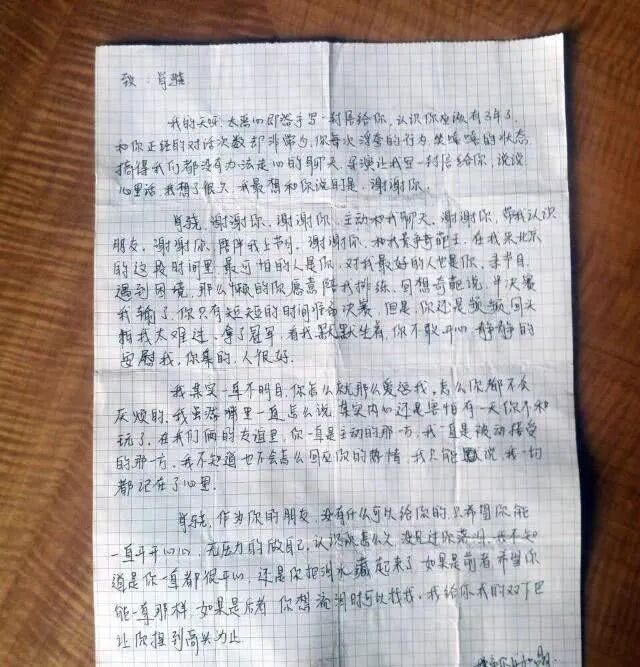 致：肖骁
我的天呀，太恶心即答于写一封信给你，认识你应该有3年了，
和你正经的对话次数却非常少，你每次浮夸的行为笑嘻嘻的状态
搞得我们都没有办法走心的聊天，导演让我写一封信给你，说说
心里话，我想了很久，我最想和你说的是，谢谢你，
肖骁，谢谢你，谢谢你，主动和我聊天，谢谢你，带我认识
朋友，谢谢你，陪伴我上节目，谢谢你，和我竞争奇葩王，在我来北京
的这段时间里，最可怕的人是你，对我最好的人也是你，录节目
遇到困境，那么懒的你愿意陪我排练，回想奇葩说，半决赛
我输了，你只有短短的时间准备决赛，但是，你还是频频回头
怕我太难过，拿了冠军，看我默默坐着，你不敢开心，静静的
安慰我，你真的，人很好。
我其实一直不明白，你怎么就那么爱逗我，怎么你都不会
厌烦的，我虽然嘴里一直怎么说，其实内心还是害怕有一天你不和
玩了，在我们俩的友谊里，你一直是主动的那一方，我一直是被动接受
的那一方，我不知道也不会怎么回应你的热情，我只能默说，我一切
都记在了心里。
肖骁，作为你的朋友，没有什么可以给你的，只希望你能
一直开开心心，无压力的做自己，认识你怎么久，没见过你落泪，我不知
道是你一直都很开心，还是你把泪水藏起来了，如果是前者，希望你
能一直那样，如果是后者，你想流泪时可以找我，我给你我的双下巴
让你捏到高兴为止